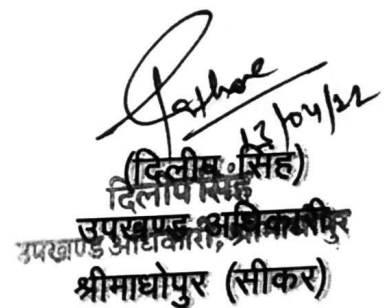 Rathore
13/04/22
(दिलीप सिंह)
दिलीप सिंह
उपखण्ड अधिकारी
उपखण्ड अधिकारी, श्रीमाधोपुर
श्रीमाधोपुर (सीकर)